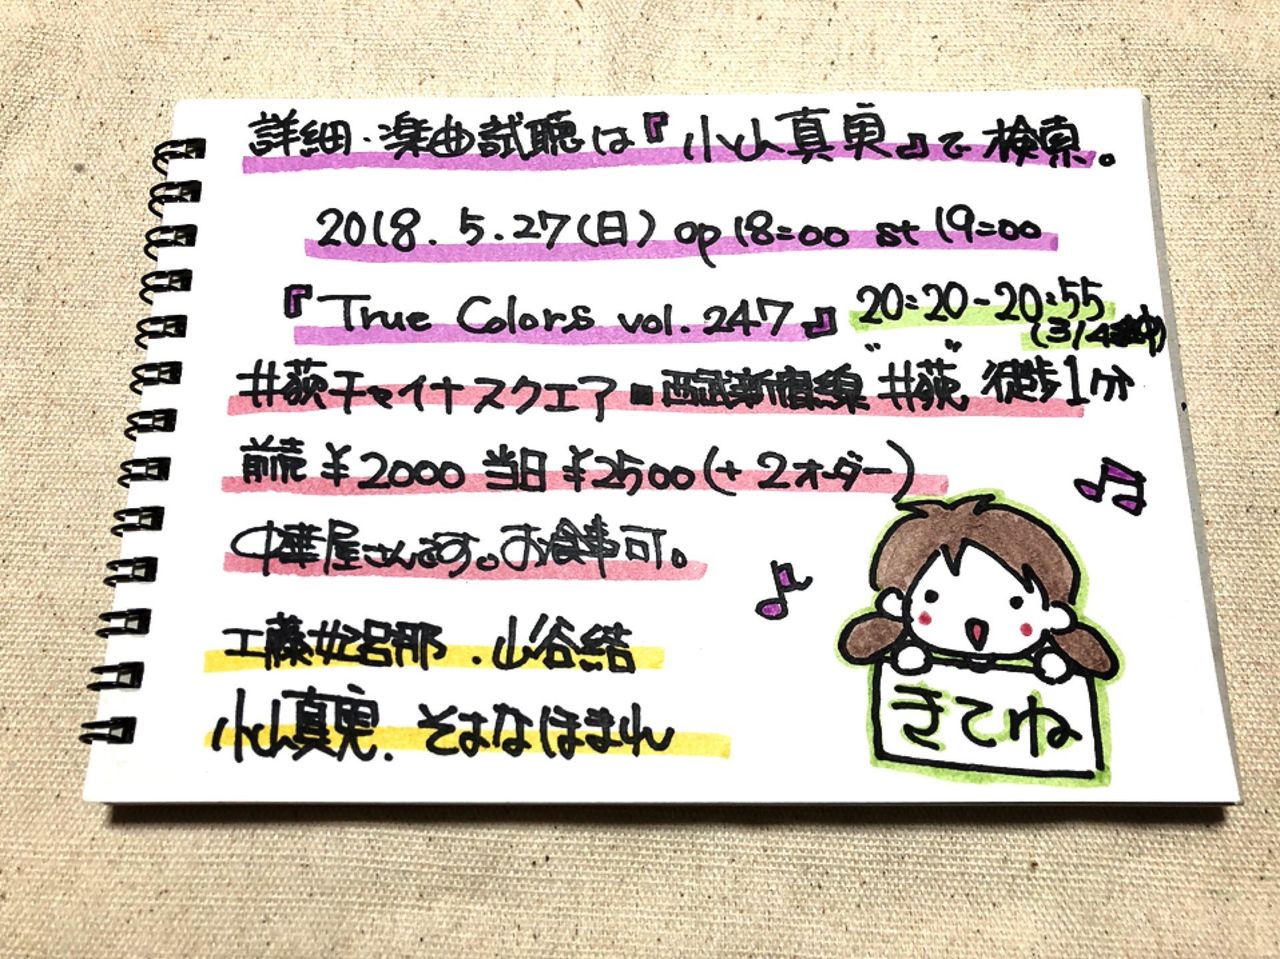 詳細・楽曲試聴は『小山真実』で検索。
2018.5.27(日) op 18:00 st 19:00
『True Colors vol.247』 20:20-20:55
(3/4組中)
井荻チャイナスクエア ■ 西武新宿線 "井荻" 徒歩1分
前売 ¥2000 当日 ¥2500 (+2オーダー)
中華屋さんです。お食事可。
工藤妃呂那 . 山谷結
小山真実 . そよなほまれ
きてね